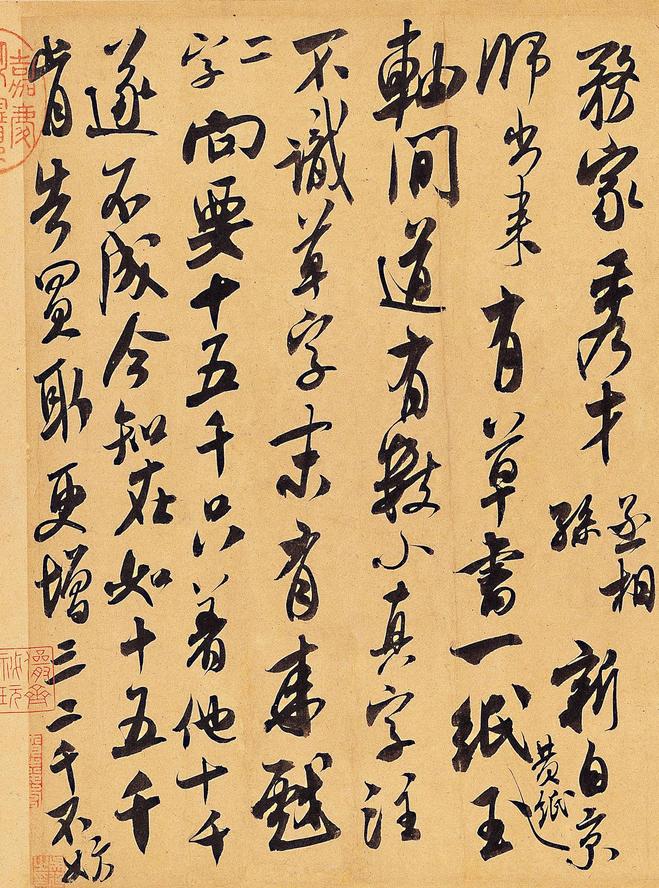 務家秀才丞相孫新自京
師出来有草書一紙黃紙玉
軸間道有數小真字注
不識草字末有来戩
二字向要十五千只着他十千
遂不成今知在如十五千
肯告買取更增三二千不妨
嘉慶
儼齋秘玩